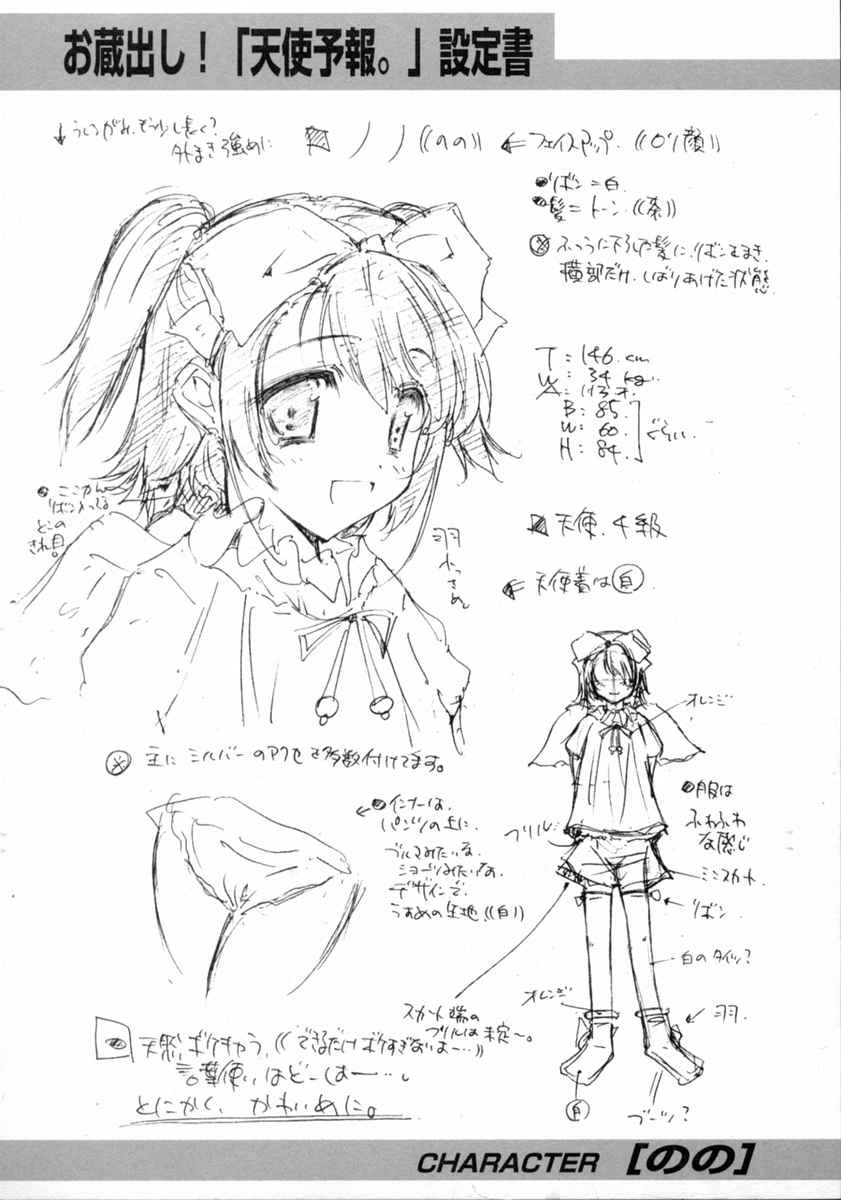 お蔵出し！「天使予報。」設定書
↓うしろがみ、もう少し長く？
外まき強めに
ノノ((のの)) ←フェイスアップ. ((ロリ顔))
リボン＝白.
髪＝トーン.((茶))
ふつうに下ろした髪に、リボンをまき、
横部だけ、しばりあげた状態
T：146.cm
W：34kg.
B：85.
W：60.
H：84.
ぐらい.
天使.4級
天使着は白.
どこの
きれ目。
羽
小っさめ
主にシルバーのアクセを多数付けてます。
インナーは、
パンツの上に、
ブルマみたいな、
ショーツみたいな、
デザインで、
うすめの生地((白))
オレンジ
服は
ふわふわ
な感じ
フリル
ミニスカート
リボン
白のタイツ？
オレンジ
羽.
スカート端の
フリルは未定〜。
白
ブーツ？
天然ボケキャラ、((できるだけボケすぎないよー…))
言葉使いはどーしよー…し
とにかく、かわいめに。
CHARACTER [のの]